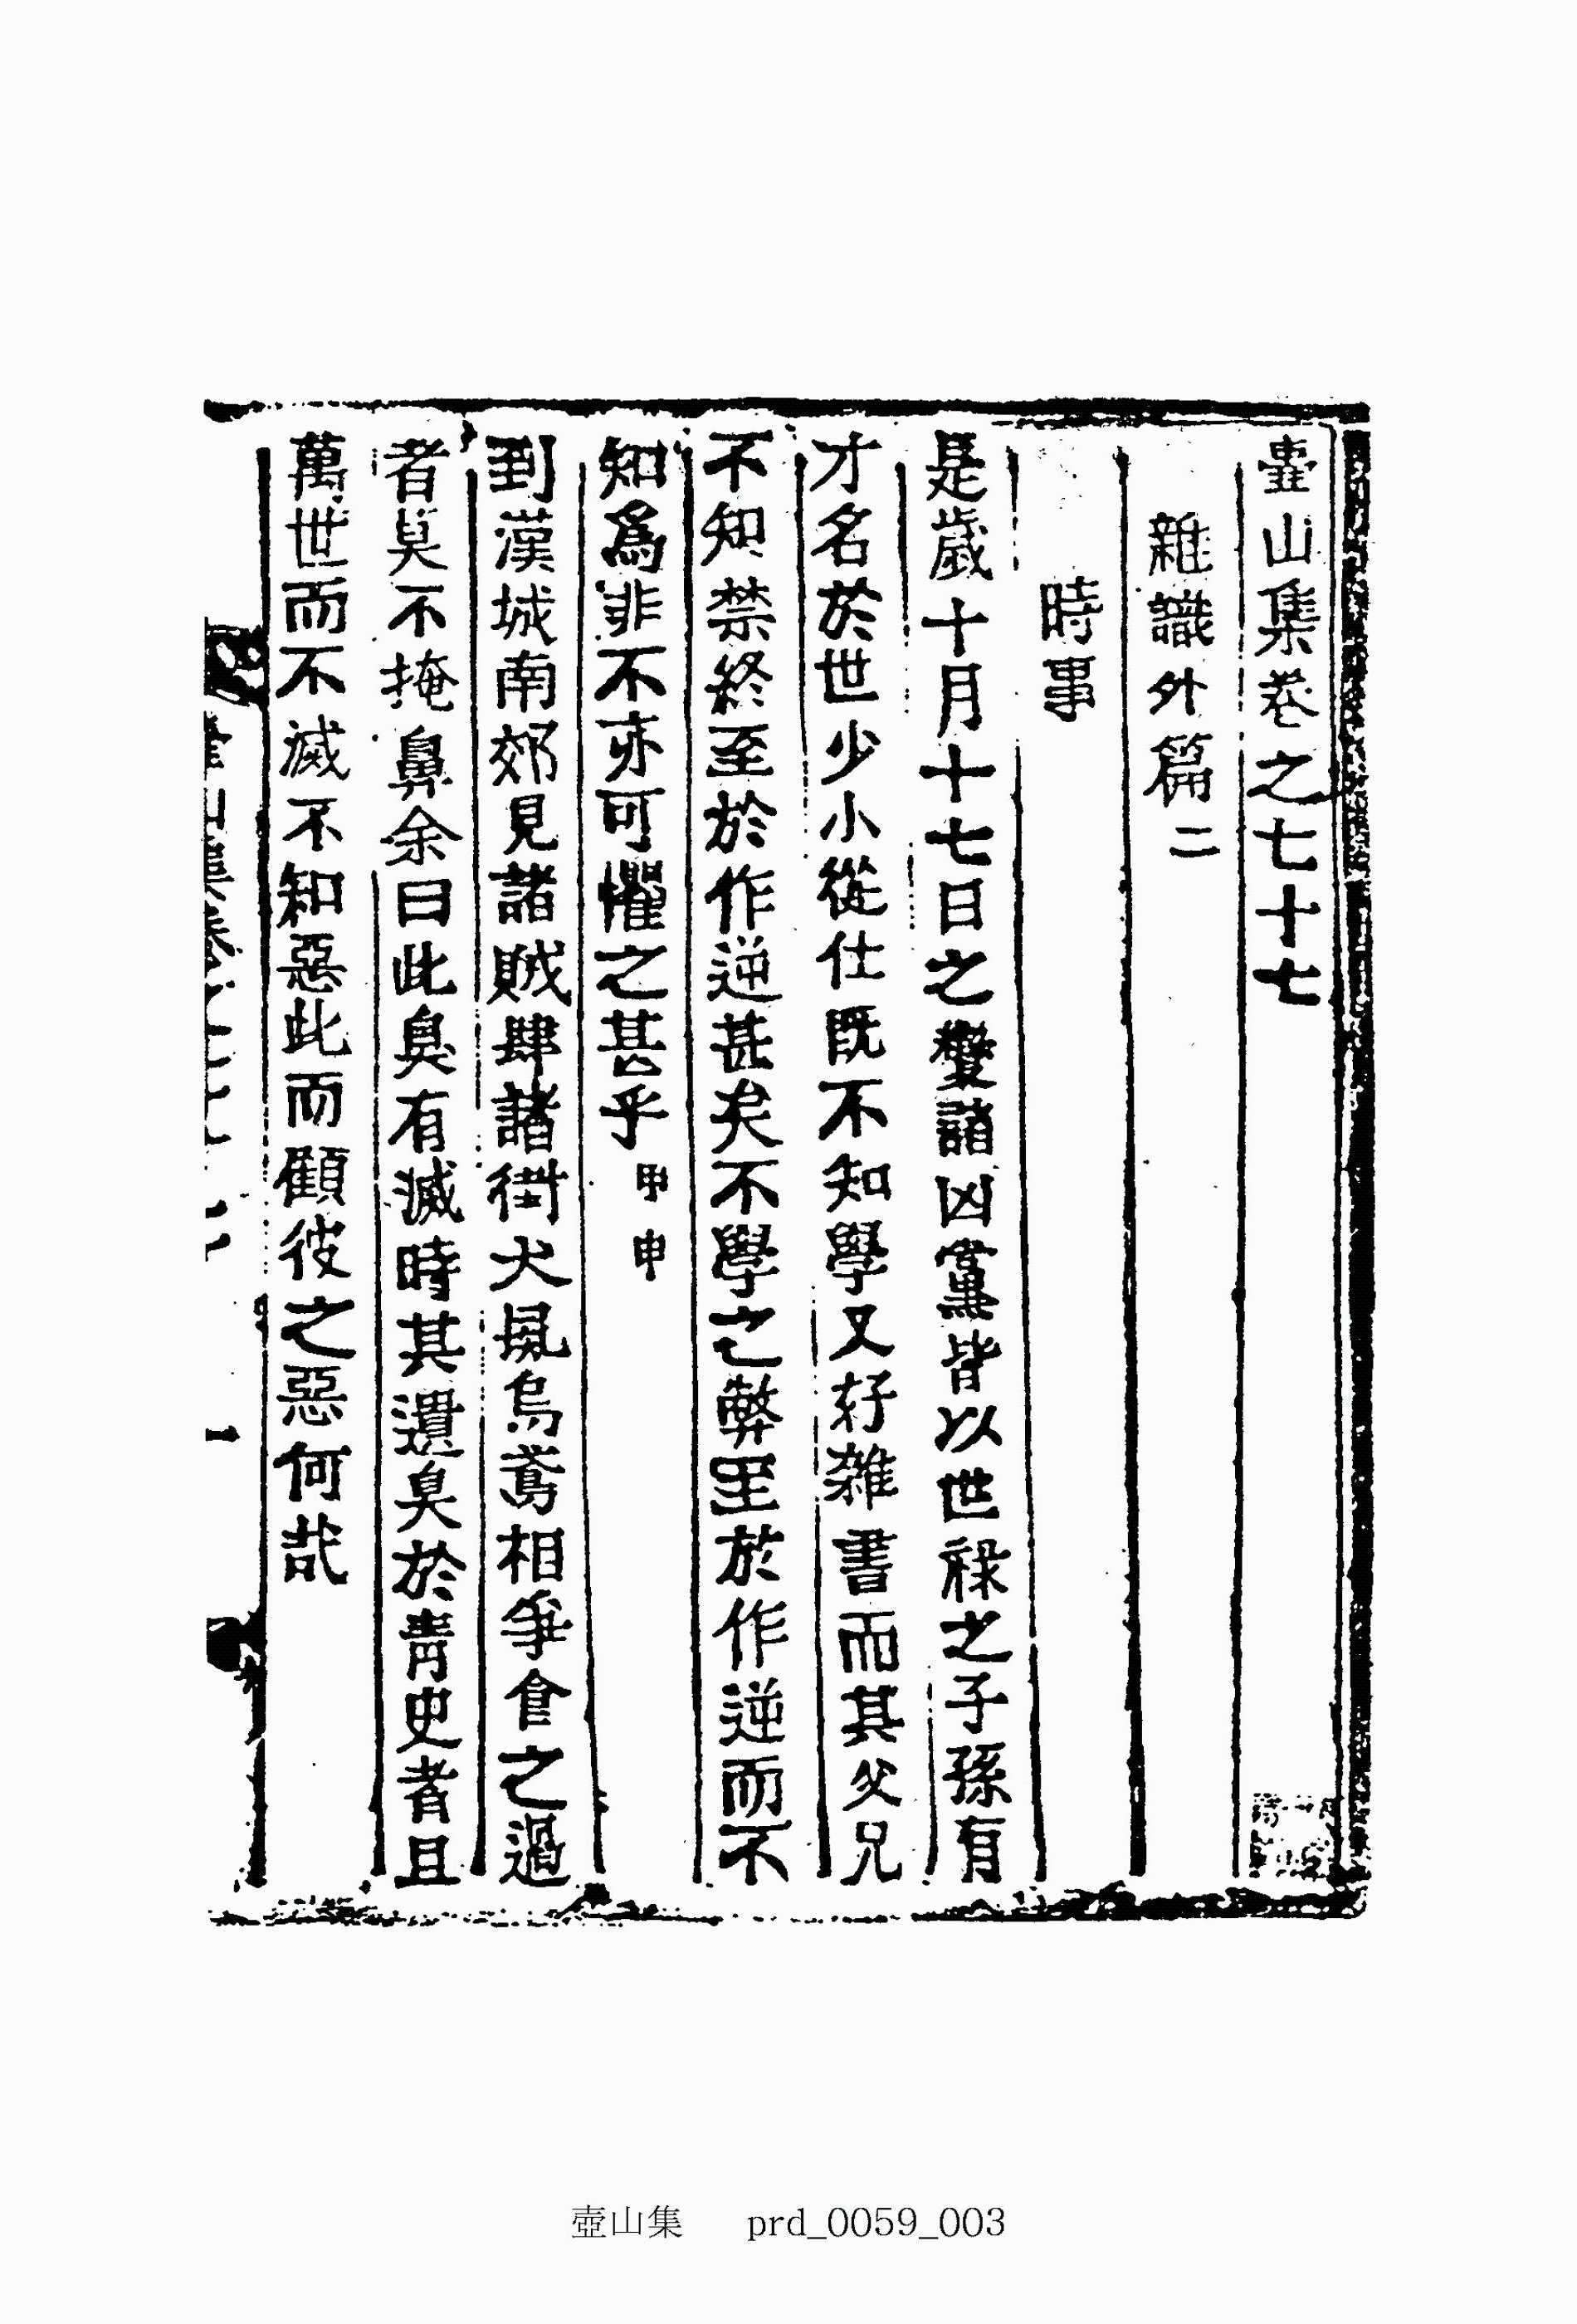 壷山集卷之七十七
雜識外篇二
時事
是歲十月十七日之變諸凶黨皆以世祿之子孫有
才名於世少小從仕旣不知學又好雜書而其父兄
不知禁終至於作逆甚矣不學之弊至於作逆而不
知爲非不亦可懼之甚乎甲申
到漢城南郊見諸賊肆諸街犬風烏鳶相爭食之過
者莫不掩鼻余曰此臭有滅時其遺臭於靑史者且
萬世而不滅不知惡此而顧彼之惡何哉
一
壺山集 prd_0059_003